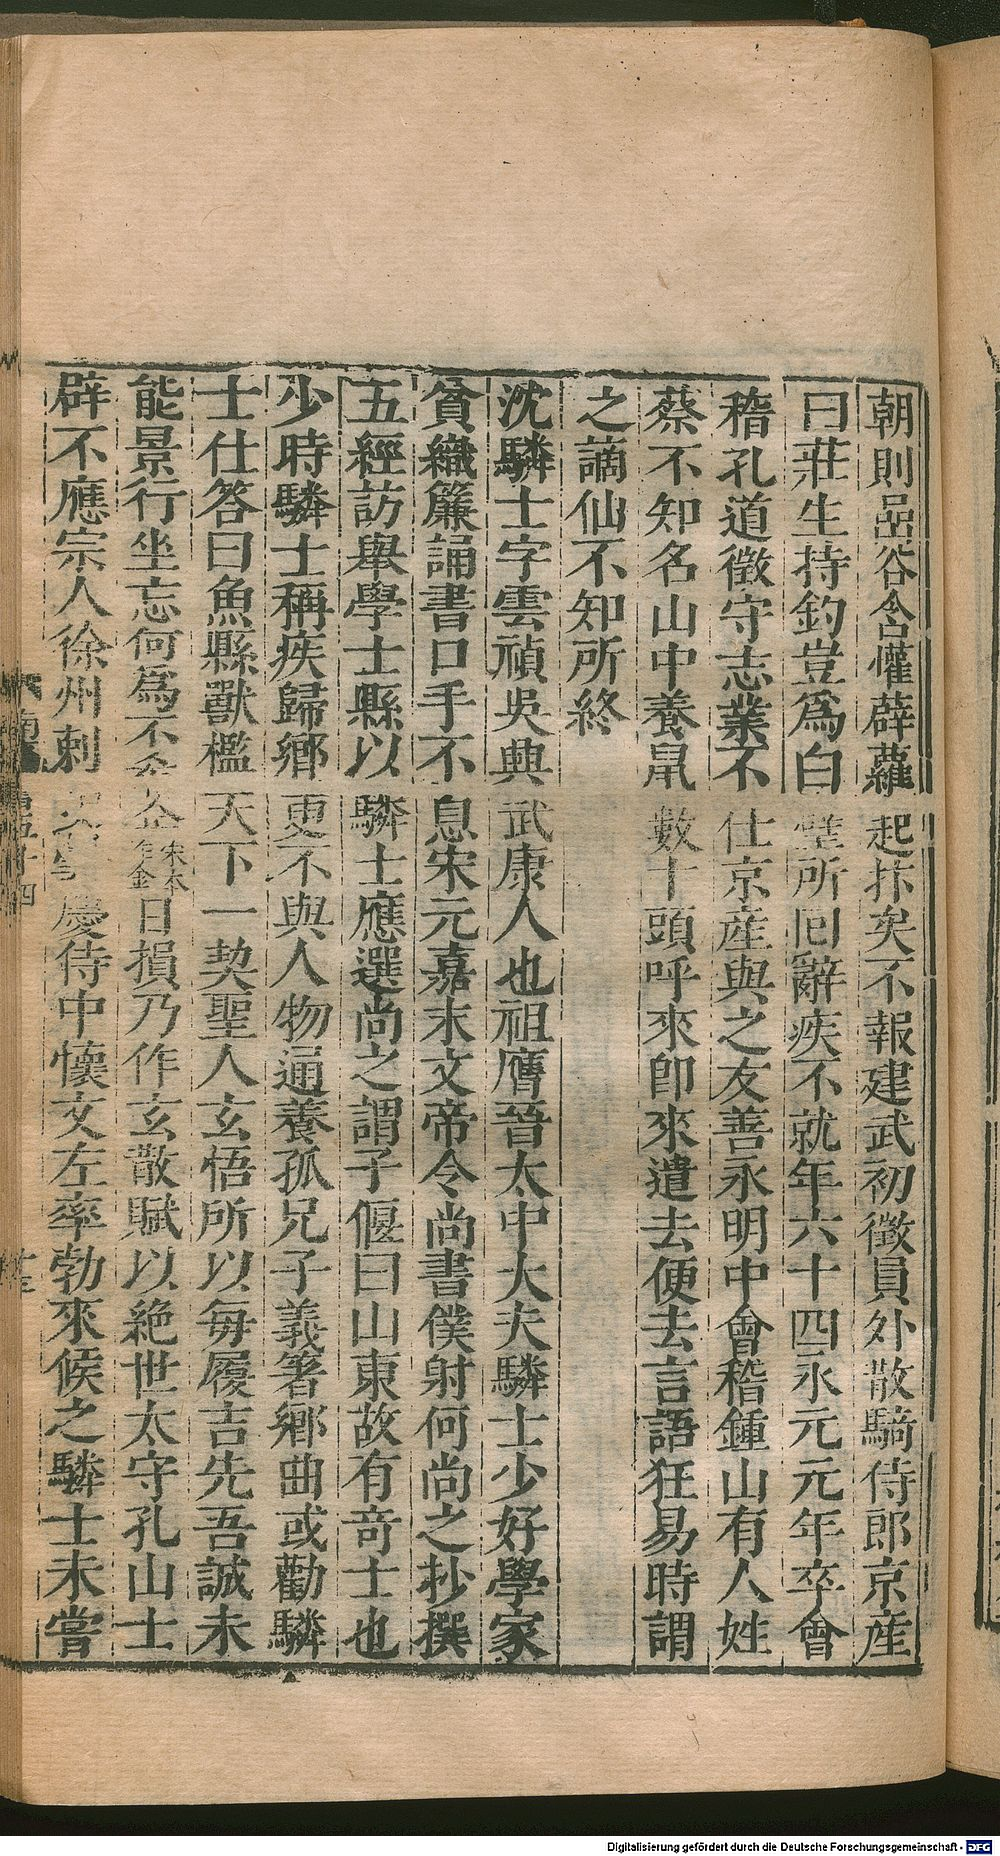 朝則嵒谷含懽薜蘿起抃矣不報建武初徵員外散騎侍郎京産
曰莊生持釣豈爲白璧所囘辭疾不就年六十四永元元年卒會
稽孔道徵守志業不仕京産與之友善永明中會稽鍾山有人姓
蔡不知名山中養鼠數十頭呼來卽來遣去便去言語狂易時謂
之謫仙不知所終
沈驎士字雲禎吳興武康人也祖膺晉太中大夫驎士少好學家
貧織簾誦書口手不息宋元嘉末文帝令尚書僕射何尚之抄撰
五經訪舉學士縣以驎士應選尚之謂子偃曰山東故有奇士也
少時驎士稱疾歸鄉更不與人物通養孤兄子義著鄉曲或勸驎
士仕答曰魚縣獸檻天下一契聖人玄悟所以每履吉先吾誠未
能景行坐忘何爲不希企日損乃作玄散賦以絶世太守孔山士
辟不應宗人徐州刺史曇慶侍中懷文左率勃來候之驎士未嘗
Digitalisierung gefördert durch die Deutsche Forschungsgemeinschaft - DFG